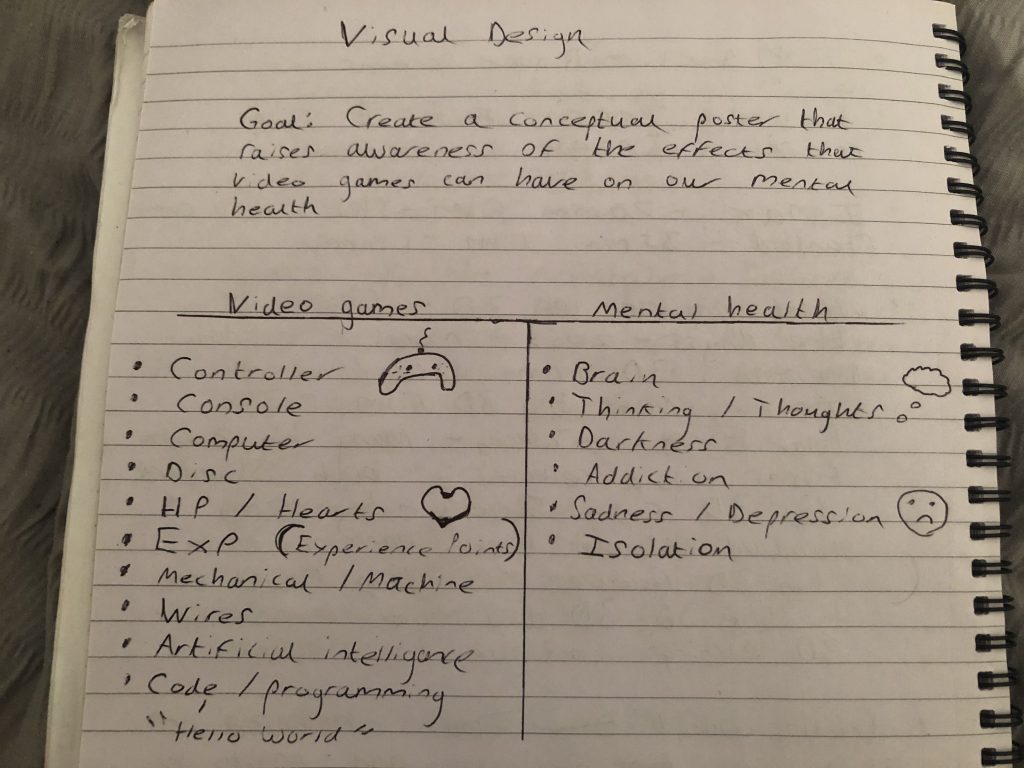 Visual Design
Goal: Create a conceptual poster that
raises awareness of the effects that
video games can have on our mental
health
Video games
• Controller
• Console
• Computer
• Disc
• HP / Hearts
• EXP (Experience Points)
• Mechanical / Machine
• Wires
• Artificial intelligence
• Code / programming
"Hello World"
Mental health
• Brain
• Thinking / Thoughts
• Darkness
• Addiction
• Sadness / Depression
• Isolation